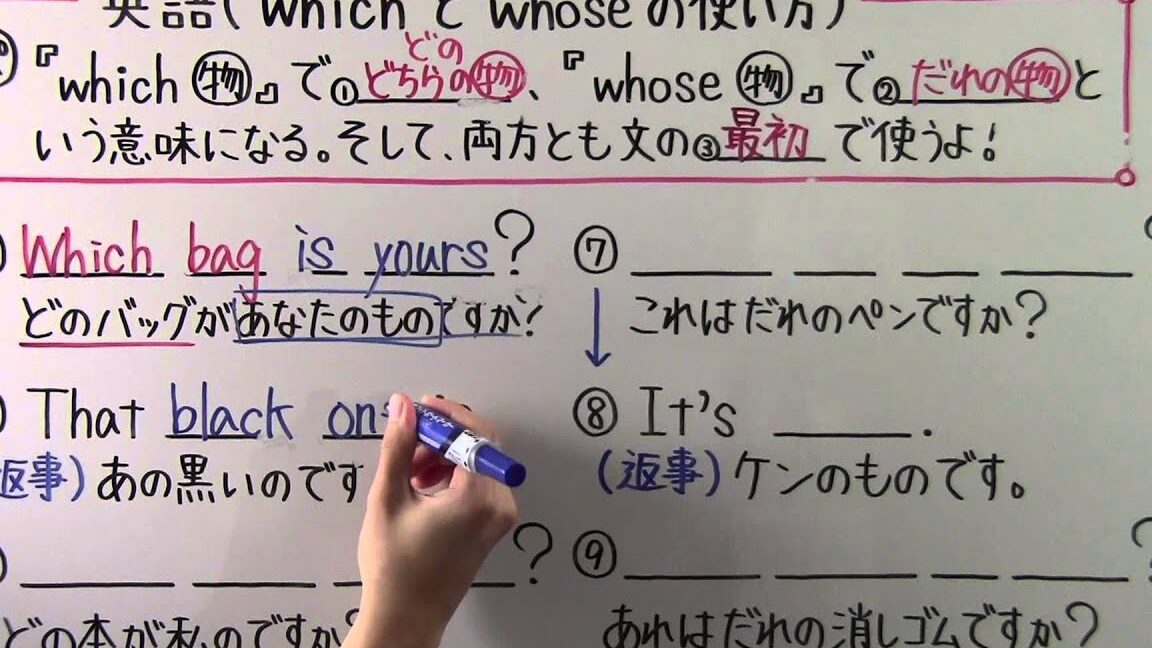 英語(whichとwhoseの使い方)
『which 物』で①どちらの物、『whose 物』で②だれの物と
どの
いう意味になる。そして、両方とも文の③最初で使うよ!
Which bag is yours?
どのバッグがあなたのものですか?
That black one
(返事)あの黒いのです
?
どの本が私のですか
⑦
これはだれのペンですか?
⑧ It's .
(返事)ケンのものです。
⑨ ?
あれはだれの消しゴムですか?